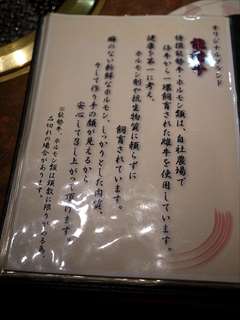 オリジナルブランド
能勢牛
特撰能勢牛・ホルモン類は、自社農場で
仔牛から一環飼育された雌牛を使用しています。
健康を第一に考え、
ホルモン剤や抗生物質に頼らずに
飼育されています。
癖のない新鮮なホルモン、しっかりとした肉質、
そして作り手の顔が見えるから
安心して召し上がって頂けます。
※能勢牛、ホルモン類は頭数に限りがある為、
品切れの場合があります。